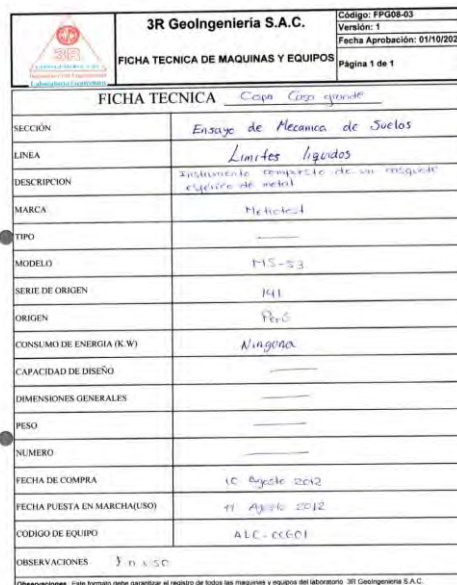 3R GeoIngeniería S.A.C.
Código: FPG08-03
Versión: 1
Fecha Aprobación: 01/10/202
FICHA TECNICA DE MAQUINAS Y EQUIPOS
Página 1 de 1
3R
FICHA TECNICA Copa Casa grande
SECCIÓN Ensayo de Mecanica de Suelos
LINEA Limites liquidos
DESCRIPCION Instrumento compuesto de un casquete
esférico de metal
MARCA Metrotest
TIPO —
MODELO MS-53
SERIE DE ORIGEN 141
ORIGEN Perú
CONSUMO DE ENERGIA (K.W) Ninguna
CAPACIDAD DE DISEÑO —
DIMENSIONES GENERALES —
PESO —
NUMERO —
FECHA DE COMPRA 10 Agosto 2012
FECHA PUESTA EN MARCHA(USO) 11 Agosto 2012
CODIGO DE EQUIPO ALC-CCG01
OBSERVACIONES
Observaciones: Este formato debe garantizar el registro de todos las maquinas y equipos del laboratorio 3R GeoIngenieria S.A.C.